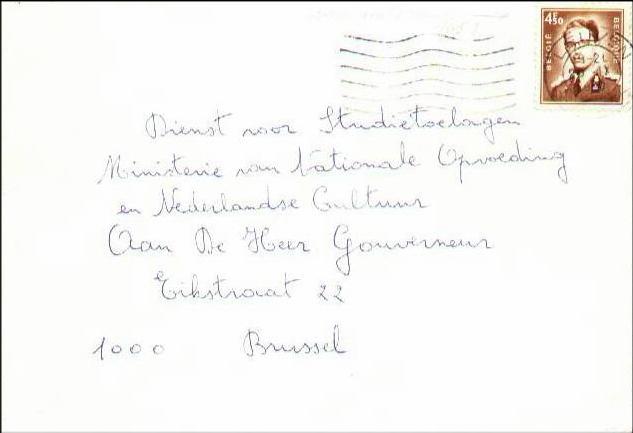 4F50
BELGIË BELGIQUE
Dienst voor Studietoelagen
Ministerie van Nationale Opvoeding
en Nederlandse Cultuur
Aan De Heer Gouverneur
Eikstraat 22
1000 Brussel